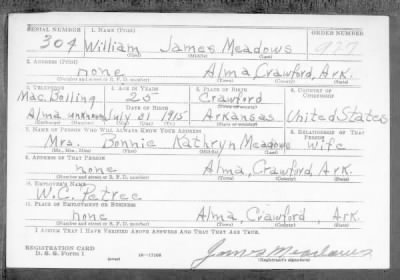 SERIAL NUMBER 1. NAME (Print) ORDER NUMBER
304 William James Meadows 927
(First) (Middle) (Last)
2. ADDRESS (Print)
none Alma, Crawford, Ark.
(Number and street or R. F. D. number) (Town) (County) (State)
3. TELEPHONE 4. AGE IN YEARS 5. PLACE OF BIRTH 6. COUNTRY OF CITIZENSHIP
Mac. Bolling 25 Crawford
DATE OF BIRTH
Alma unknown July 01 1915 Arkansas United States
7. NAME OF PERSON WHO WILL ALWAYS KNOW YOUR ADDRESS 8. RELATIONSHIP OF THAT PERSON
Mrs. Bonnie Kathryn Meadows wife
(Mr., Mrs., Miss) (First) (Middle) (Last)
9. ADDRESS OF THAT PERSON
none Alma, Crawford, Ark.
(Number and street or R. F. D. number) (Town) (County) (State)
10. EMPLOYER'S NAME
W.C. Petree
11. PLACE OF EMPLOYMENT OR BUSINESS
none Alma, Crawford, Ark.
(Number and street or R. F. D. number) (Town) (County) (State)
I AFFIRM THAT I HAVE VERIFIED ABOVE ANSWERS AND THAT THEY ARE TRUE.
REGISTRATION CARD
D. S. S. Form 1 16—17105 James Meadows
(Registrant's signature)